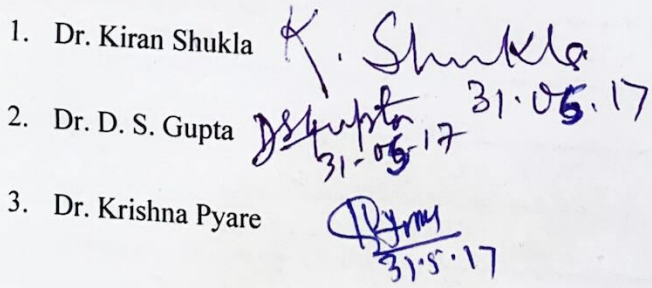 1. Dr. Kiran Shukla K. Shukla
31.05.17
2. Dr. D. S. Gupta DSGupta
31-05-17
3. Dr. Krishna Pyare
31.5.17